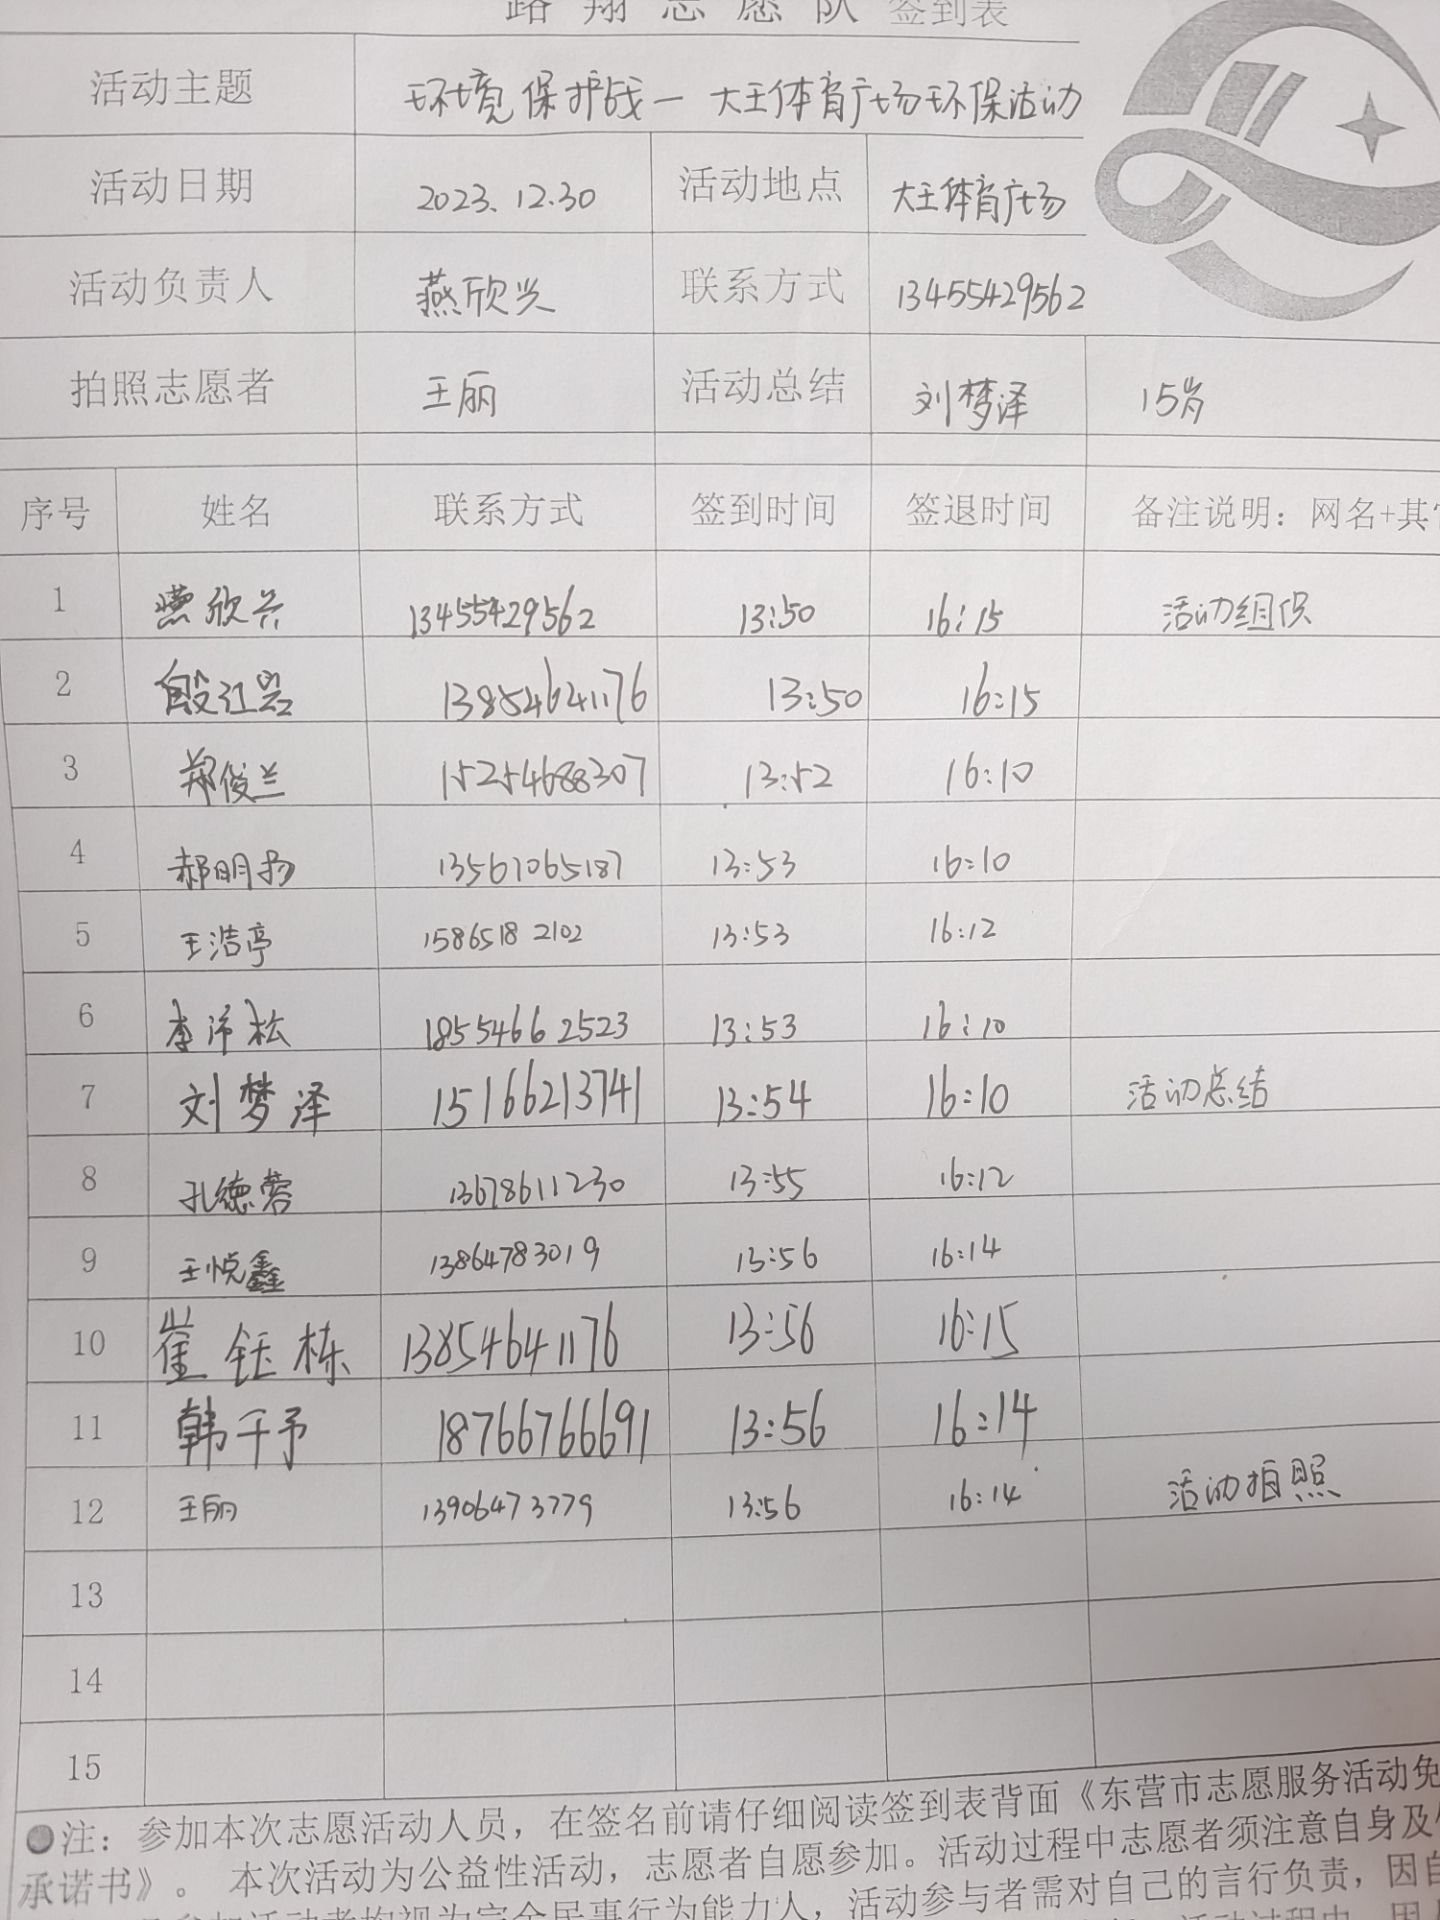 路翔志愿队 签到表
活动主题 环境保护战一大王体育广场环保活动
活动日期 2023.12.30 活动地点 大王体育广场
活动负责人 燕欣兴 联系方式 13455429562
拍照志愿者 王丽 活动总结 刘梦泽 15岁
序号 姓名 联系方式 签到时间 签退时间 备注说明：网名+其
1 燕欣兴 13455429562 13:50 16:15 活动组织
2 13854641176 13:50 16:15
3 郑俊兰 15254688307 13:52 16:10
4 郝明扬 13561065187 13:53 16:10
5 王浩亭 1586518 2102 13:53 16:12
6 李沛松 1855466 2523 13:53 16:10
7 刘梦泽 15166213741 13:54 16:10 活动总结
8 孔德蓉 13678611230 13:55 16:12
9 王悦鑫 13864783019 13:56 16:14
10 崔钰栋 13854641176 13:56 16:15
11 韩千予 18766766691 13:56 16:14
12 王丽 13906473779 13:56 16:14 活动拍照
13
14
15
●注：参加本次志愿活动人员，在签名前请仔细阅读签到表背面《东营市志愿服务活动免
承诺书》。本次活动为公益性活动，志愿者自愿参加。活动过程中志愿者须注意自身及
参加活动者均视为完全民事行为能力人，活动参与者需对自己的言行负责，因自